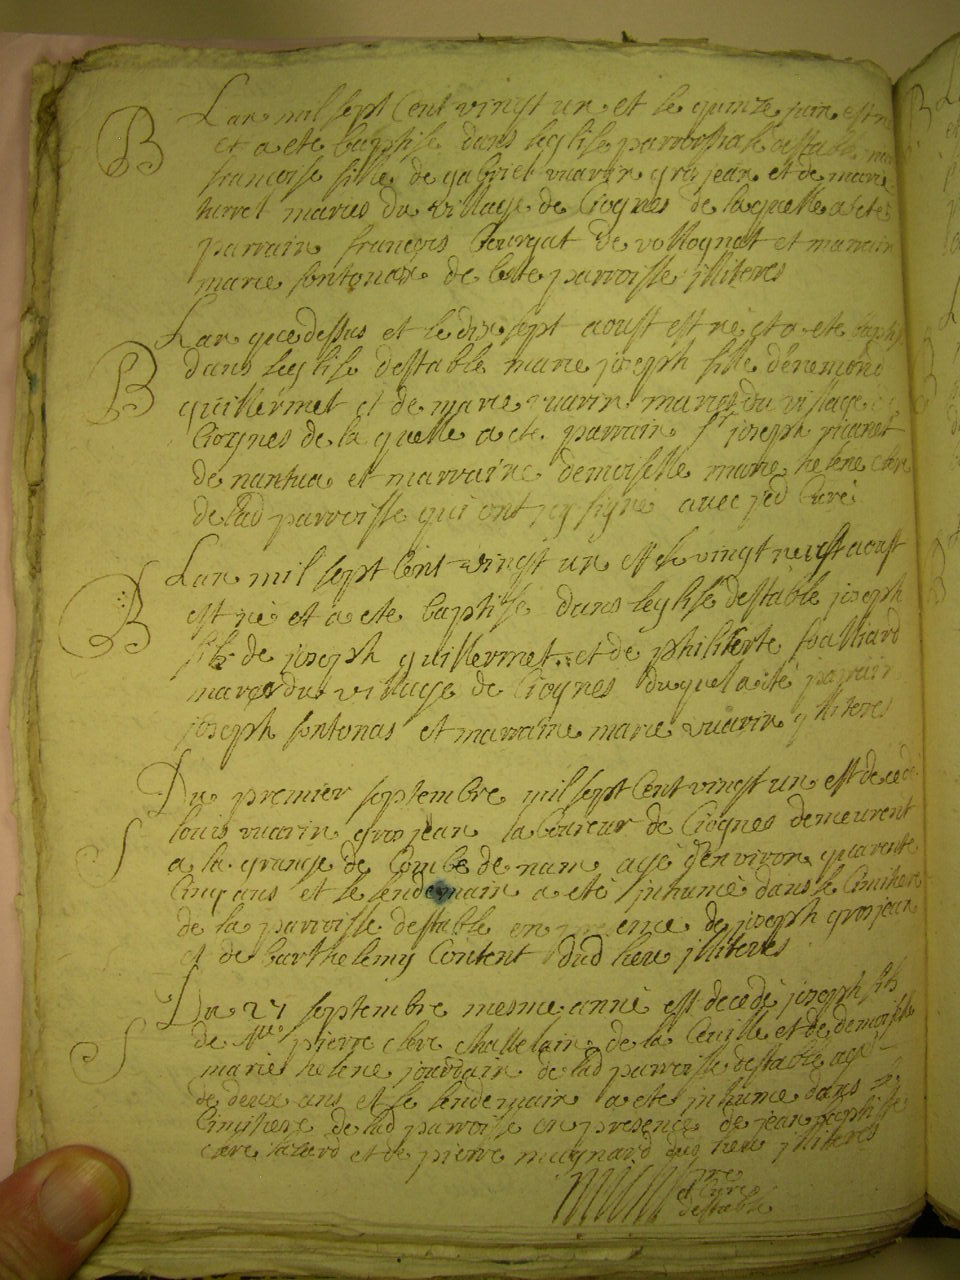 B
Lan mil sept Cent vingt un et le quinze juin est n
et a ete baptise dans leglise parroissiale destable
francoise fille de gabriel vuarin gros jean et de marie
turrel maries du village de Ciognes de laquelle a ete
parrain francois Bourgat de vollognat et marrain
marie fontonax de Cette parroisse jlliteres
B
Lan que dessus et le dix sept aoust est né et a ete baptis
dans leglise destable marie joseph fille denemond
guillermet et de marie vuarin maries du village
Ciognes de la quelle a ete parrain Sr joseph
de nantua et marraine demoiselle marie helene
de lad parroisse qui ont signé avec jed Curé
B
Lan mil sept Cent vingt un et le vingt neufst aoust
est né et a ete baptise dans leglise destable joseph
fils de joseph guillermet et de philiberte
maries du village de Ciognes duquel a ete parrain
joseph fontonas et marraine marie vuarin jlliteres
S
Du premier septembre mil sept Cent vingt un est decede
louis vuarin gros jean laboureur de Ciognes demeurent
a la grange de Combe de nam agé denviron quarente
Cinq ans et le lendemain a eté jnhumé dans le Cimitiere
de la parroisse destable en de joseph gros jean
et de barthelemy Content dud lieu jlliteres
S
Du 27 septembre mesme anné est decedé joseph fils
de pierre chastelain de la et de demoiselle
marie helene jourdain de lad parroisse destable agé
de deux ans et le lendemain a ete jnhume dans
Cimitiere de lad parroisse en presence de jean baptiste
et de pierre dud lieu jlliteres
destable